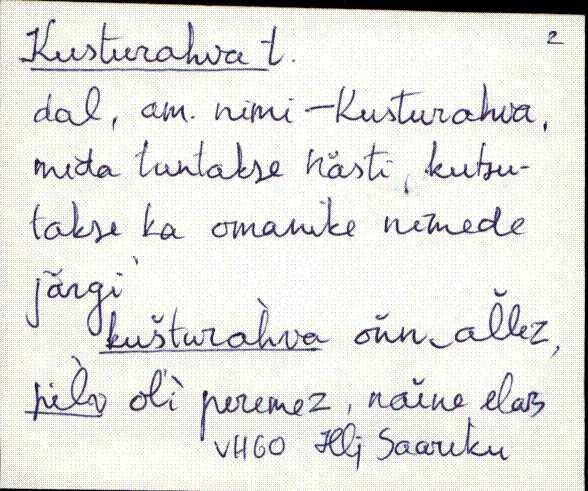 2
Kusturahva t.
dal, am. nimi – Kusturahva,
mida tuntakse hästi, kutsu-
takse ka omanike nimede
järgi
kušturàhva oñn‿aľlez,
pìlv oľì peremez, naine elas
VH60 Hlj Saariku